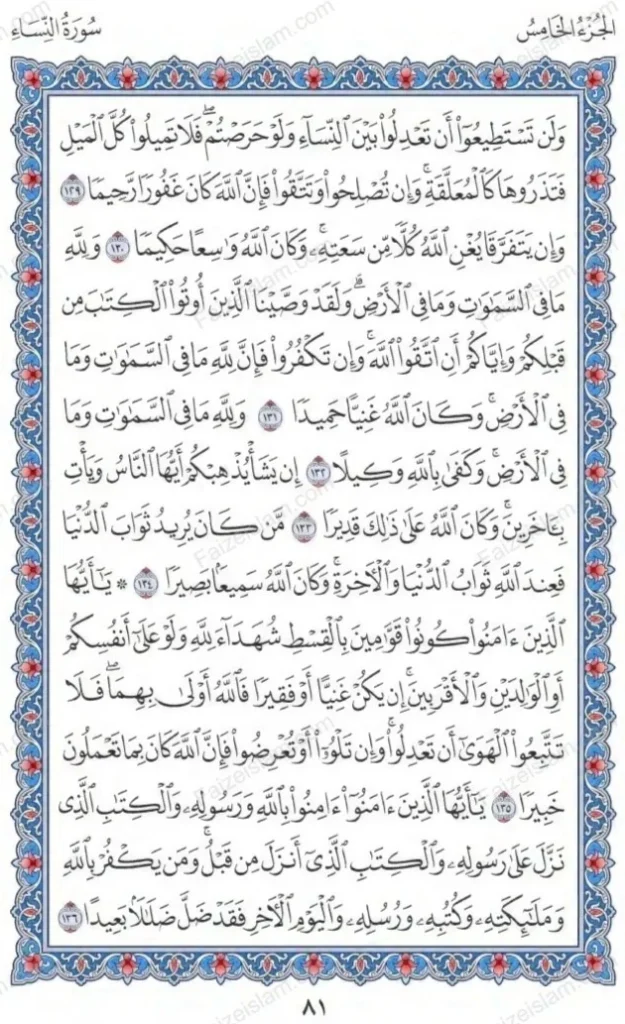 الجُزْءُ الخَامِسُ
سُورَةُ النِّسَاءِ
وَلَن تَسْتَطِيعُوٓا۟ أَن تَعْدِلُوا۟ بَيْنَ ٱلنِّسَآءِ وَلَوْ حَرَصْتُمْ ۖ فَلَا تَمِيلُوا۟ كُلَّ ٱلْمَيْلِ
فَتَذَرُوهَا كَٱلْمُعَلَّقَةِ ۚ وَإِن تُصْلِحُوا۟ وَتَتَّقُوا۟ فَإِنَّ ٱللَّهَ كَانَ غَفُورًا رَّحِيمًا ١٢٩
وَإِن يَتَفَرَّقَا يُغْنِ ٱللَّهُ كُلًّا مِّن سَعَتِهِۦ ۚ وَكَانَ ٱللَّهُ وَٰسِعًا حَكِيمًا ١٣٠ وَلِلَّهِ
مَا فِى ٱلسَّمَٰوَٰتِ وَمَا فِى ٱلْأَرْضِ ۗ وَلَقَدْ وَصَّيْنَا ٱلَّذِينَ أُوتُوا۟ ٱلْكِتَٰبَ مِن
قَبْلِكُمْ وَإِيَّاكُمْ أَنِ ٱتَّقُوا۟ ٱللَّهَ ۚ وَإِن تَكْفُرُوا۟ فَإِنَّ لِلَّهِ مَا فِى ٱلسَّمَٰوَٰتِ وَمَا
فِى ٱلْأَرْضِ ۚ وَكَانَ ٱللَّهُ غَنِيًّا حَمِيدًا ١٣١ وَلِلَّهِ مَا فِى ٱلسَّمَٰوَٰتِ وَمَا
فِى ٱلْأَرْضِ ۚ وَكَفَىٰ بِٱللَّهِ وَكِيلًا ١٣٢ إِن يَشَأْ يُذْهِبْكُمْ أَيُّهَا ٱلنَّاسُ وَيَأْتِ
بِـَٔاخَرِينَ ۚ وَكَانَ ٱللَّهُ عَلَىٰ ذَٰلِكَ قَدِيرًا ١٣٣ مَّن كَانَ يُرِيدُ ثَوَابَ ٱلدُّنْيَا
فَعِندَ ٱللَّهِ ثَوَابُ ٱلدُّنْيَا وَٱلْأٓخِرَةِ ۚ وَكَانَ ٱللَّهُ سَمِيعًۢا بَصِيرًا ١٣٤ * يَٰٓأَيُّهَا
ٱلَّذِينَ ءَامَنُوا۟ كُونُوا۟ قَوَّٰمِينَ بِٱلْقِسْطِ شُهَدَآءَ لِلَّهِ وَلَوْ عَلَىٰٓ أَنفُسِكُمْ
أَوِ ٱلْوَٰلِدَيْنِ وَٱلْأَقْرَبِينَ ۚ إِن يَكُنْ غَنِيًّا أَوْ فَقِيرًا فَٱللَّهُ أَوْلَىٰ بِهِمَا ۖ فَلَا
تَتَّبِعُوا۟ ٱلْهَوَىٰٓ أَن تَعْدِلُوا۟ ۚ وَإِن تَلْوُۥٓا۟ أَوْ تُعْرِضُوا۟ فَإِنَّ ٱللَّهَ كَانَ بِمَا تَعْمَلُونَ
خَبِيرًا ١٣٥ يَٰٓأَيُّهَا ٱلَّذِينَ ءَامَنُوٓا۟ ءَامِنُوا۟ بِٱللَّهِ وَرَسُولِهِۦ وَٱلْكِتَٰبِ ٱلَّذِى
نَزَّلَ عَلَىٰ رَسُولِهِۦ وَٱلْكِتَٰبِ ٱلَّذِىٓ أَنزَلَ مِن قَبْلُ ۚ وَمَن يَكْفُرْ بِٱللَّهِ
وَمَلَٰٓئِكَتِهِۦ وَكُتُبِهِۦ وَرُسُلِهِۦ وَٱلْيَوْمِ ٱلْأٓخِرِ فَقَدْ ضَلَّ ضَلَٰلًۢا بَعِيدًا ١٣٦
٨١
Faizeislam.com